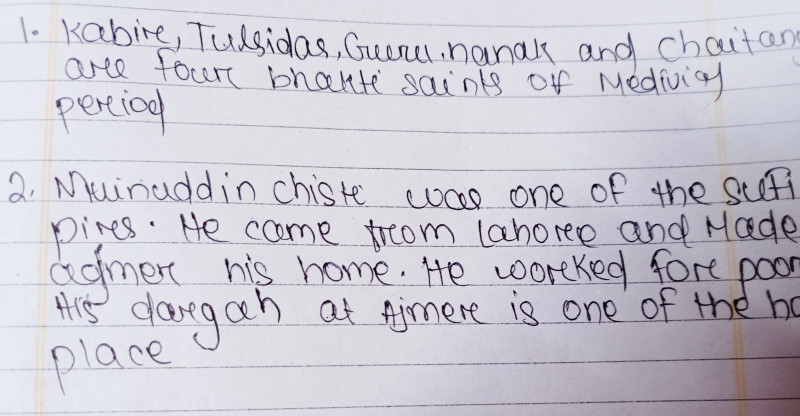 1. Kabire, Tulsidas, Gueru.nanak and Chaitan
are foure bhakti saints of Medivial
period
2. Muinuddin chiste was one of the sufi
pires. He came from lahoree and Made
adjmer his home. He woreked fore poor
His daregah at Ajmere is one of the ho
place